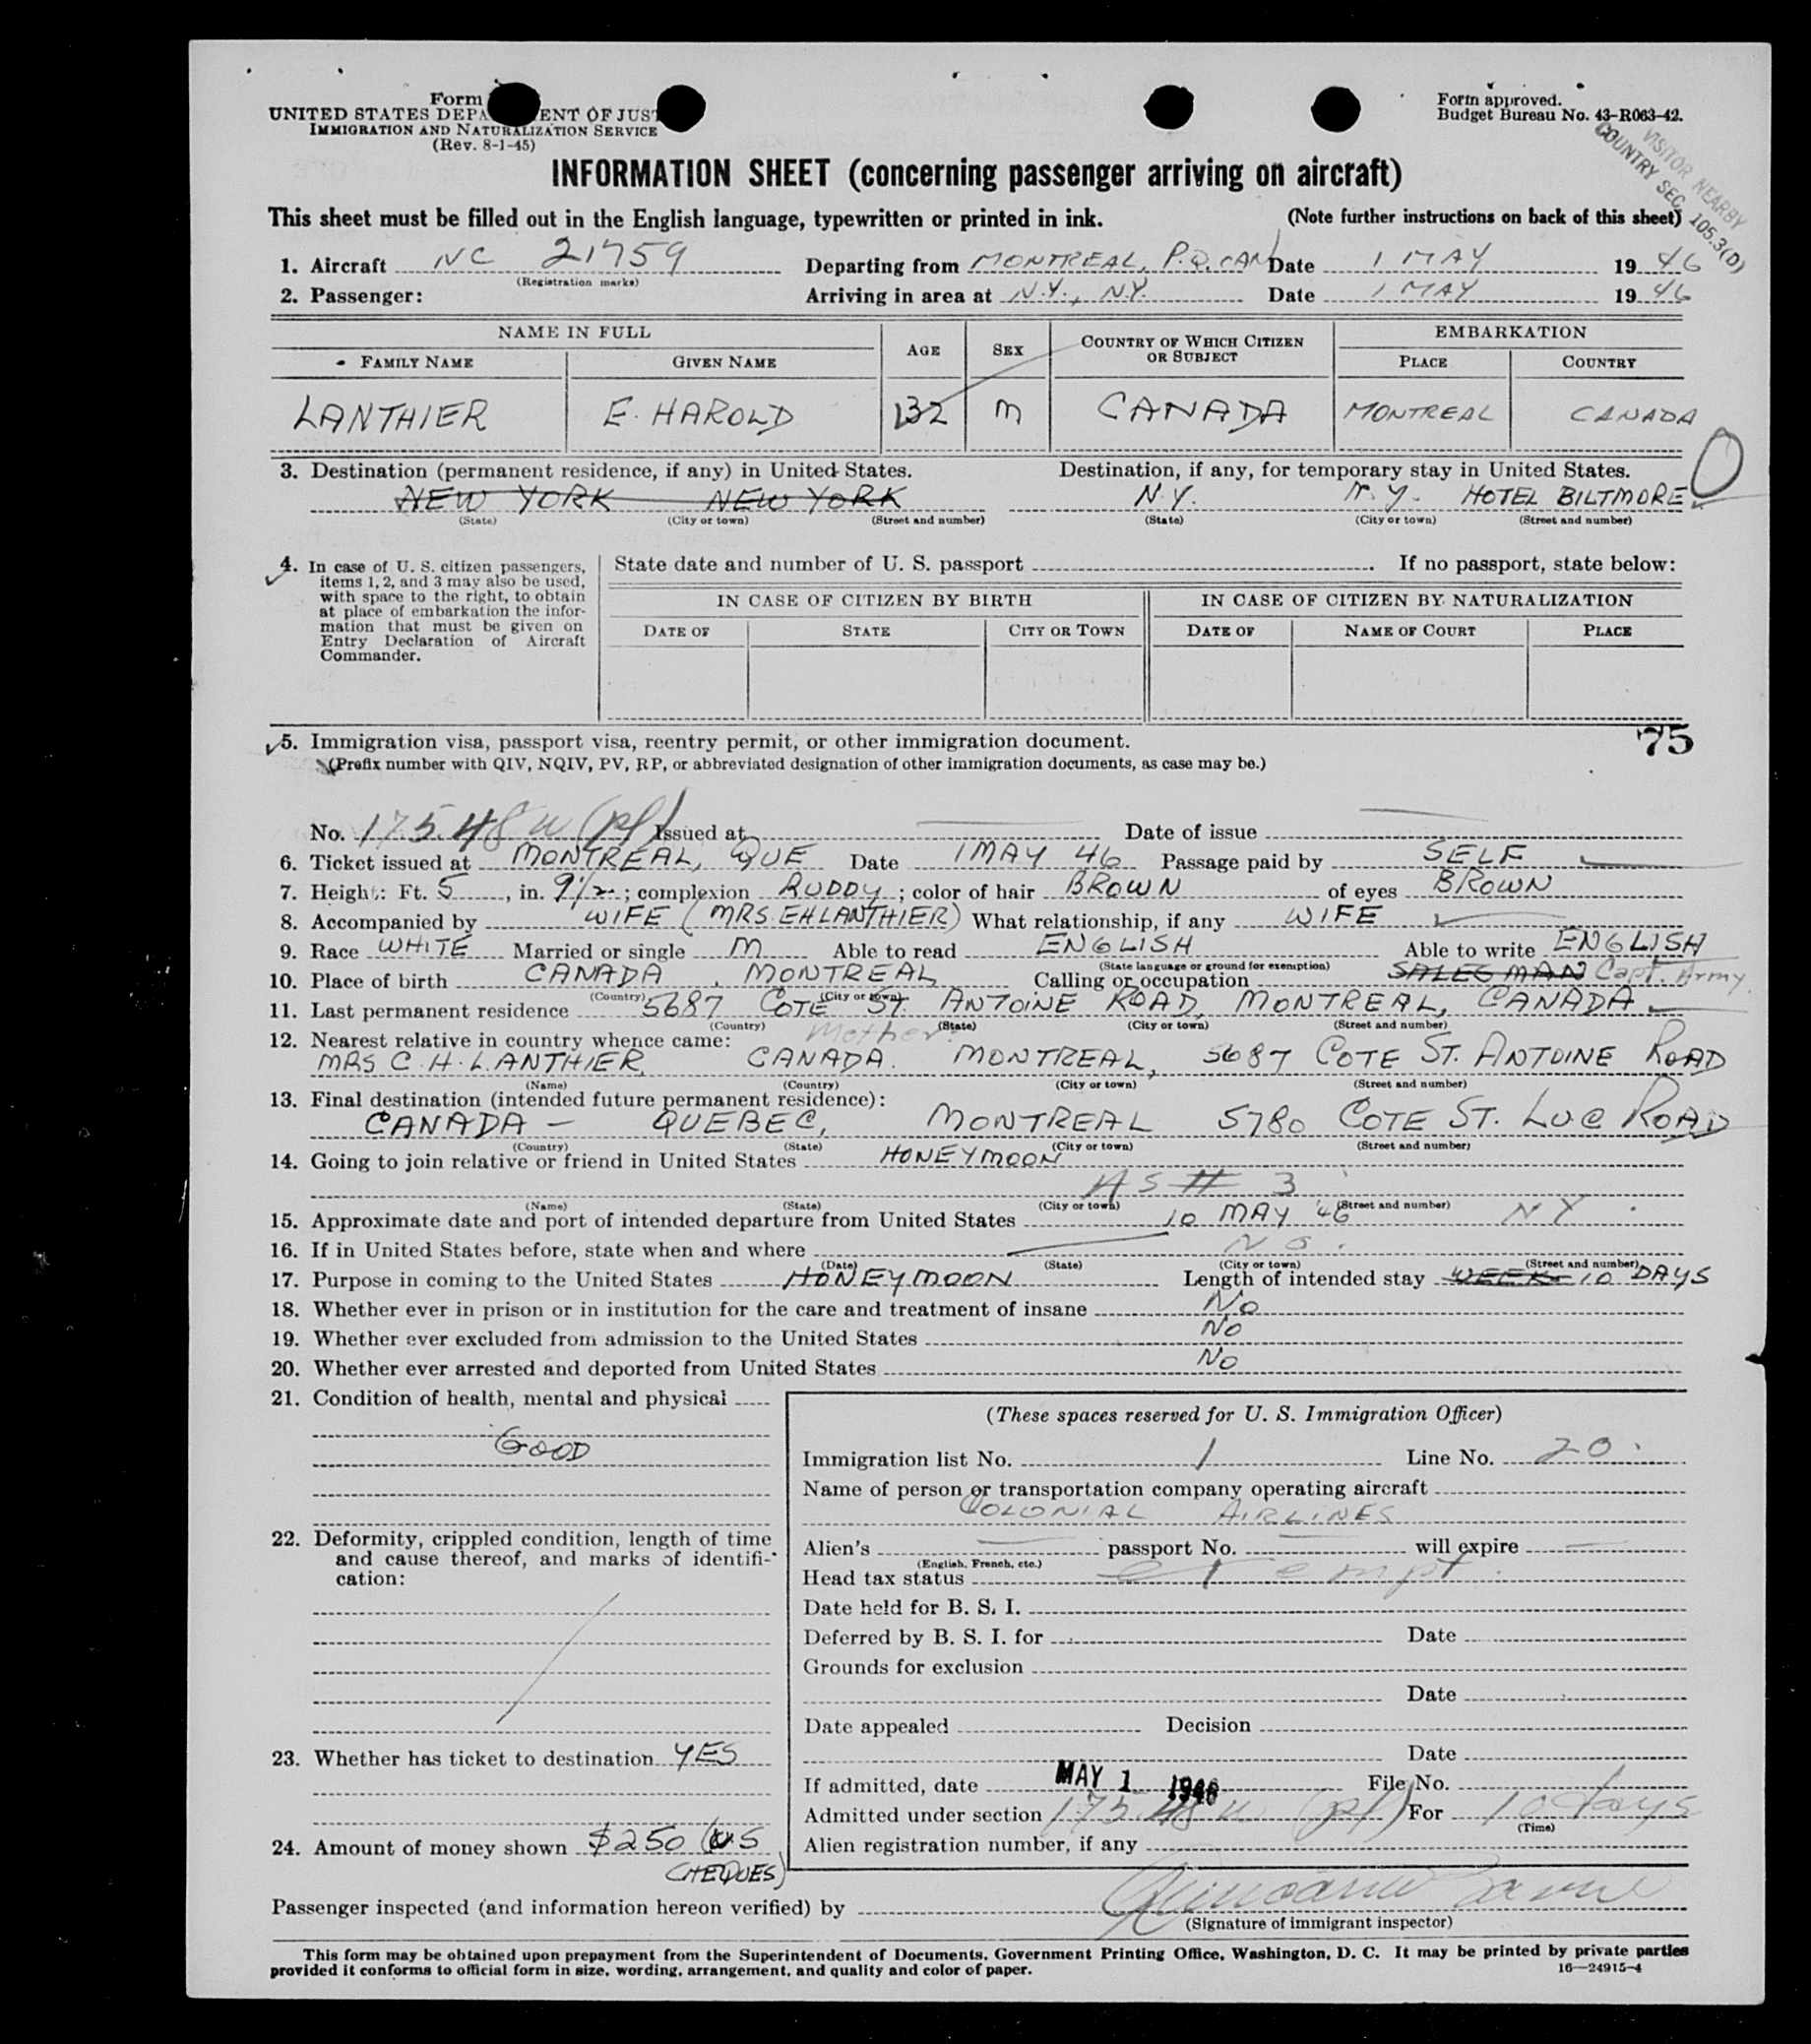 Form
UNITED STATES DEPA ENT OF JUST
IMMIGRATION AND NATURALIZATION SERVICE
(Rev. 8-1-45)
Form approved.
Budget Bureau No. 43-R063-42.
VISITOR NEARBY
COUNTRY SEC. 105.3(D)
INFORMATION SHEET (concerning passenger arriving on aircraft)
This sheet must be filled out in the English language, typewritten or printed in ink. (Note further instructions on back of this sheet)
1. Aircraft NC 21759 Departing from MONTREAL, P.Q. CAN Date 1 MAY 1946
(Registration marks)
2. Passenger: Arriving in area at N.Y., N.Y. Date 1 MAY 1946
NAME IN FULL AGE SEX COUNTRY OF WHICH CITIZEN OR SUBJECT EMBARKATION
FAMILY NAME GIVEN NAME PLACE COUNTRY
LANTHIER E. HAROLD 32 M CANADA MONTREAL CANADA
3. Destination (permanent residence, if any) in United States. Destination, if any, for temporary stay in United States.
NEW YORK NEW YORK N.Y. N.Y. HOTEL BILTMORE
(State) (City or town) (Street and number) (State) (City or town) (Street and number)
4. In case of U. S. citizen passengers, items 1, 2, and 3 may also be used, with space to the right, to obtain at place of embarkation the information that must be given on Entry Declaration of Aircraft Commander.
State date and number of U. S. passport If no passport, state below:
IN CASE OF CITIZEN BY BIRTH IN CASE OF CITIZEN BY NATURALIZATION
DATE OF STATE CITY OR TOWN DATE OF NAME OF COURT PLACE
75
5. Immigration visa, passport visa, reentry permit, or other immigration document.
(Prefix number with QIV, NQIV, PV, RP, or abbreviated designation of other immigration documents, as case may be.)
No. 175.48 Issued at Date of issue
6. Ticket issued at MONTREAL, QUE Date 1 MAY 46 Passage paid by SELF
7. Height: Ft. 5, in. 9 1/2; complexion RUDDY; color of hair BROWN of eyes BROWN
8. Accompanied by WIFE (MRS. EH LANTHIER) What relationship, if any WIFE
9. Race WHITE Married or single M Able to read ENGLISH Able to write ENGLISH
(State language or ground for exemption)
10. Place of birth CANADA, MONTREAL Calling or occupation SALESMAN Capt. Army
(Country) (City or town)
11. Last permanent residence 5687 COTE ST. ANTOINE ROAD, MONTREAL, CANADA
(Country) (State) (City or town) (Street and number)
12. Nearest relative in country whence came: Mother
MRS C. H. LANTHIER, CANADA. MONTREAL, 5687 COTE ST. ANTOINE ROAD
(Name) (Country) (City or town) (Street and number)
13. Final destination (intended future permanent residence):
CANADA - QUEBEC, MONTREAL 5780 COTE ST. LUC ROAD
(Country) (State) (City or town) (Street and number)
14. Going to join relative or friend in United States HONEYMOON
AS # 3
(Name) (State) (City or town) (Street and number)
15. Approximate date and port of intended departure from United States 10 MAY '46 NY
16. If in United States before, state when and where No.
(Date) (State) (City or town) (Street and number)
17. Purpose in coming to the United States HONEYMOON Length of intended stay WEEK 10 DAYS
18. Whether ever in prison or in institution for the care and treatment of insane No
19. Whether ever excluded from admission to the United States No
20. Whether ever arrested and deported from United States No
21. Condition of health, mental and physical
GOOD
22. Deformity, crippled condition, length of time and cause thereof, and marks of identification:
23. Whether has ticket to destination YES
24. Amount of money shown $250 (US
CHEQUES)
(These spaces reserved for U. S. Immigration Officer)
Immigration list No. 1 Line No. 20
Name of person or transportation company operating aircraft
COLONIAL AIRLINES
Alien's passport No. will expire
(English, French, etc.)
Head tax status exempt
Date held for B. S. I.
Deferred by B. S. I. for Date
Grounds for exclusion
Date
Date appealed Decision
Date
If admitted, date MAY 1 1946 File No.
Admitted under section 175.48 For 10 days
(Time)
Alien registration number, if any
Passenger inspected (and information hereon verified) by
(Signature of immigrant inspector)
This form may be obtained upon prepayment from the Superintendent of Documents, Government Printing Office, Washington, D. C. It may be printed by private parties
provided it conforms to official form in size, wording, arrangement, and quality and color of paper. 16—24915-4